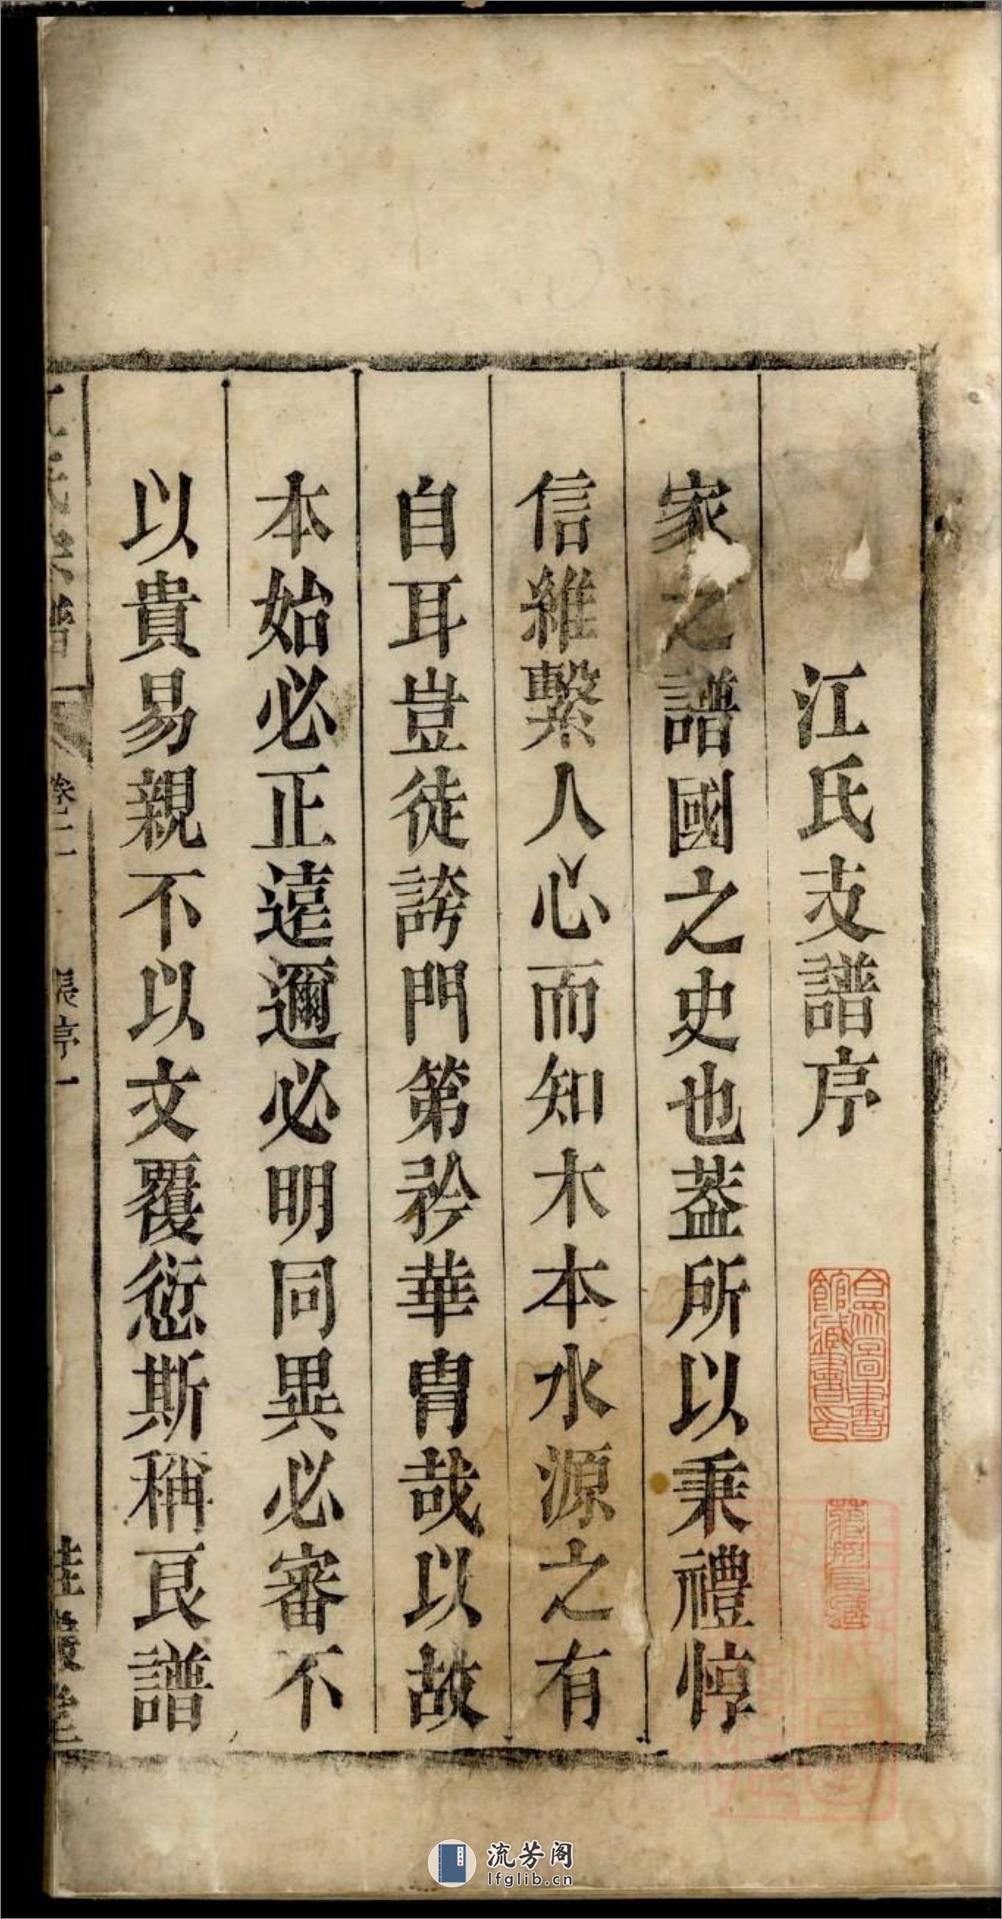 江氏支譜序
家之譜國之史也葢所以秉禮惇
信維繫人心而知木本水源之有
自耳豈徒誇門第矜華胄哉以故
本始必正遠邇必明同異必審不
以貴易親不以文覆愆斯稱良譜
江氏宗譜
卷二
張序一
流芳阁
lfglib.cn